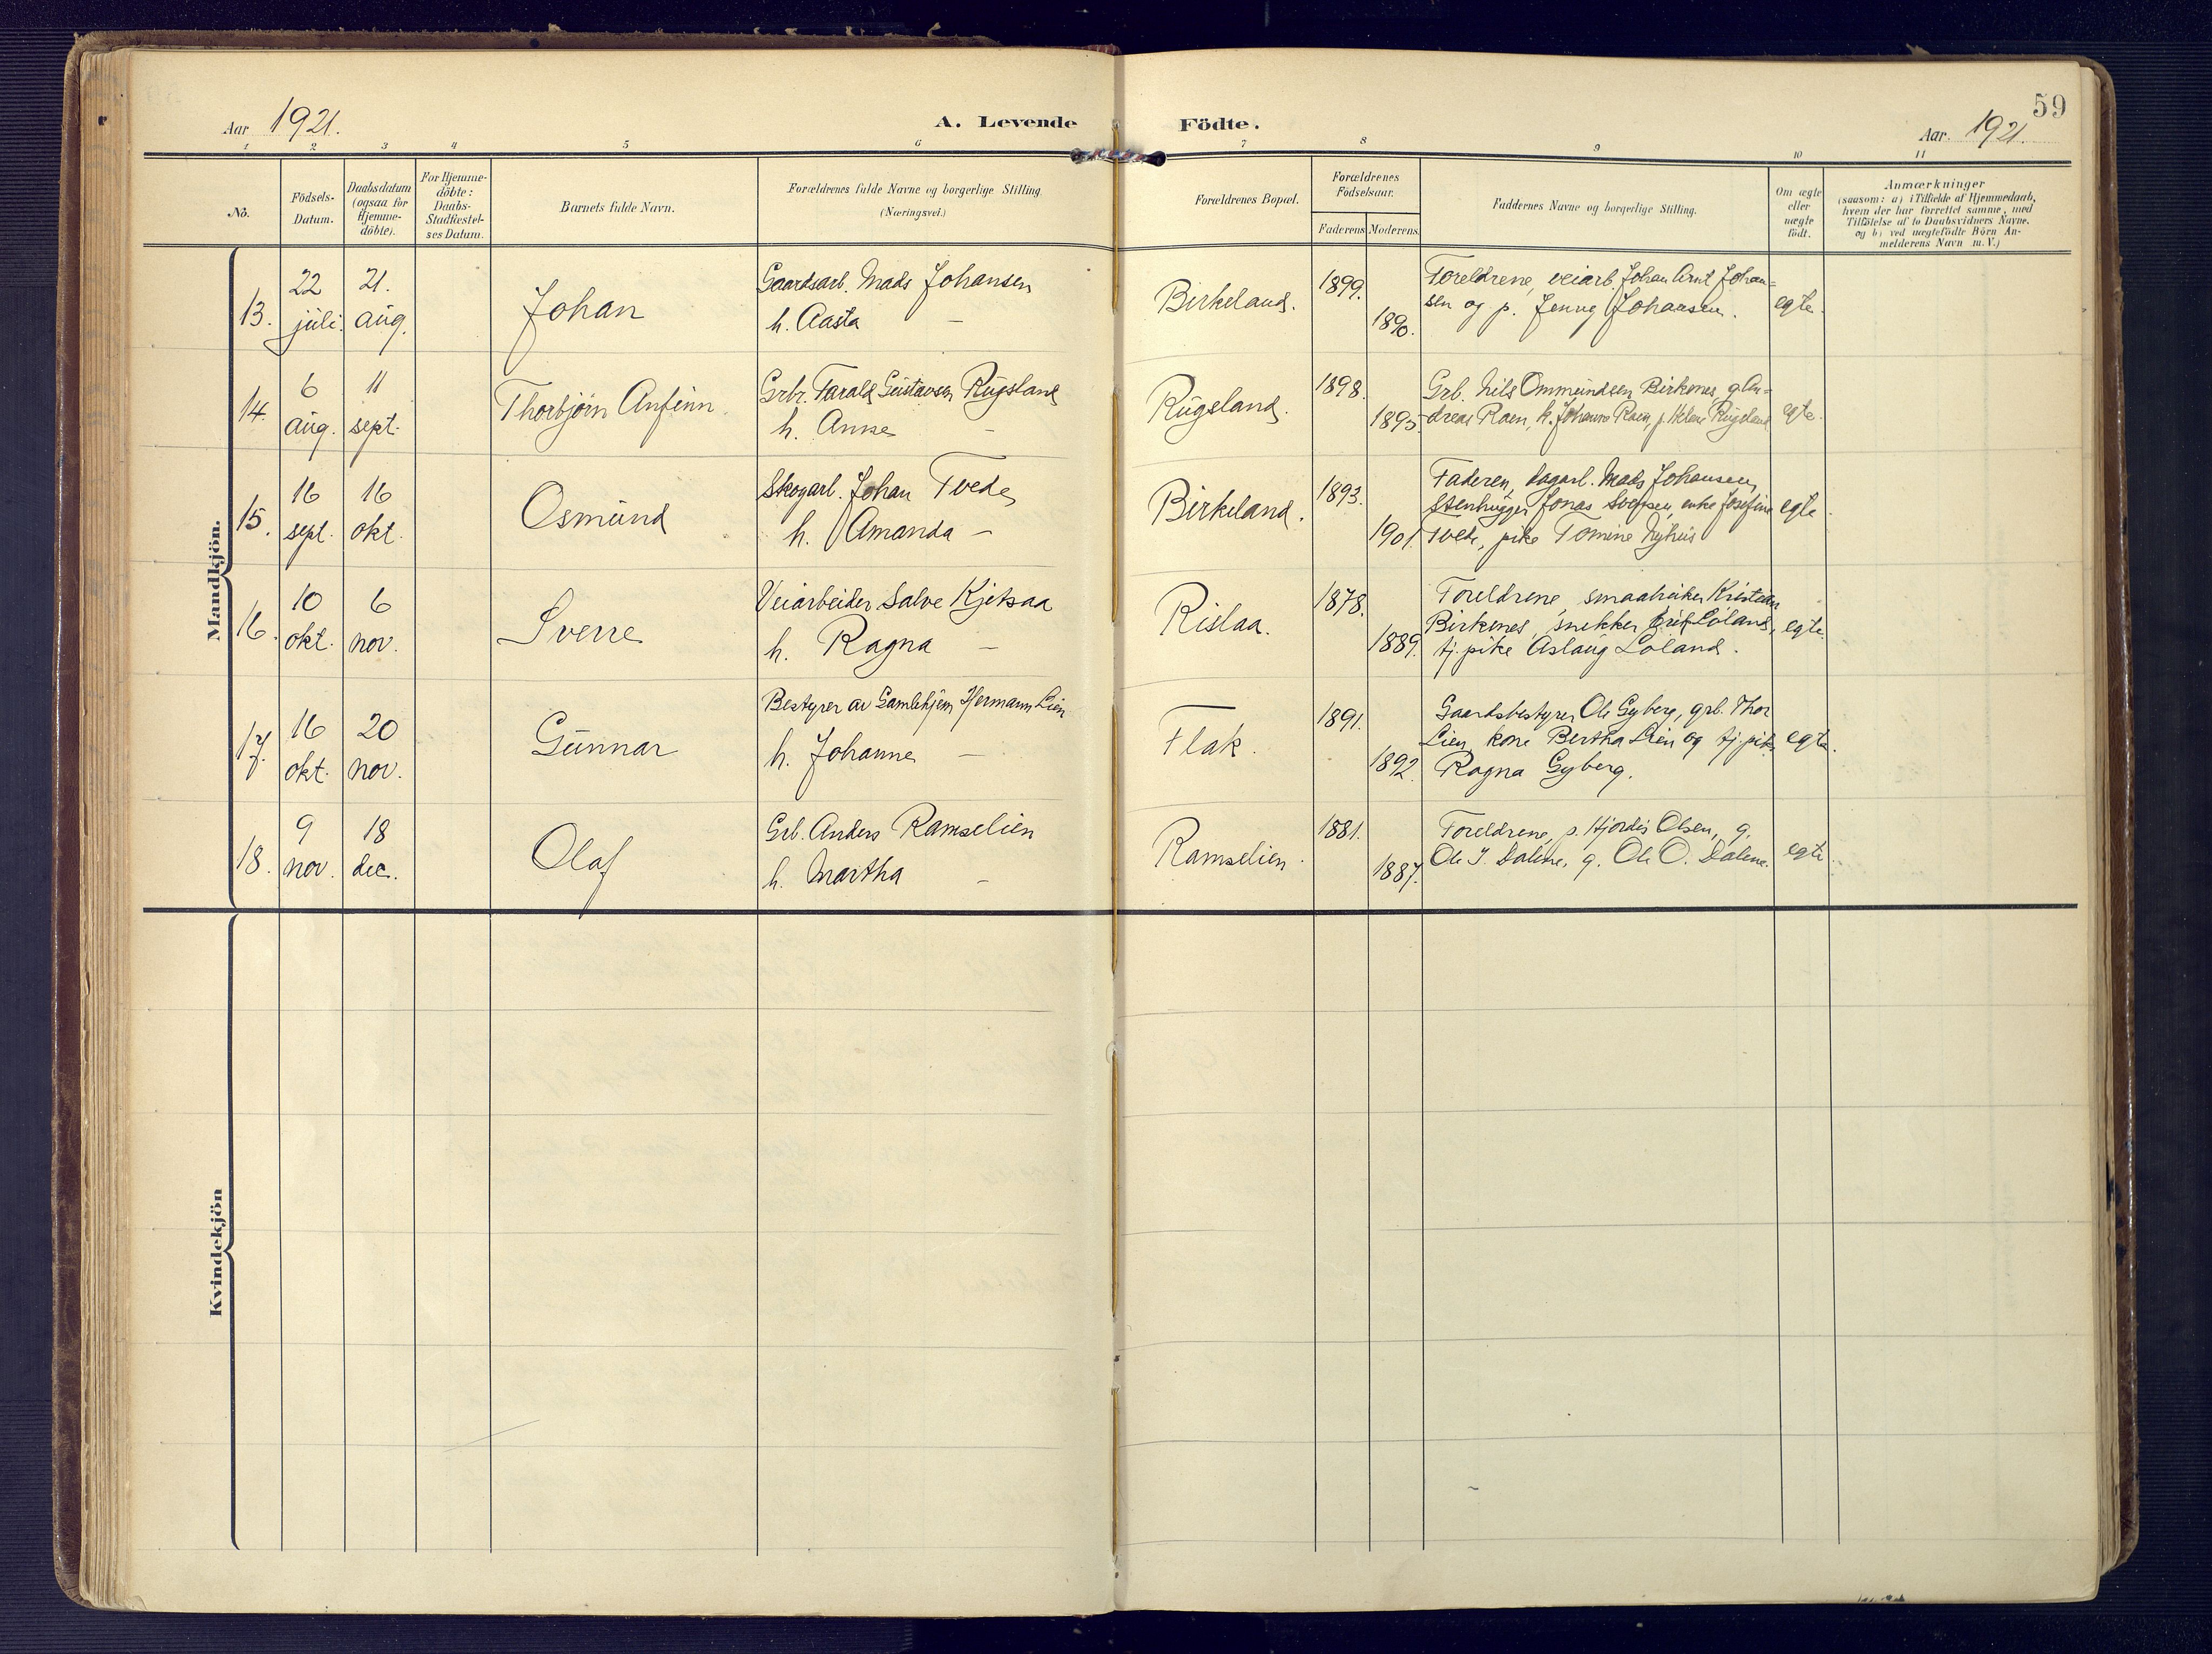 59
Aar 1921.
A. Levende Födte.
Aar. 1921.
1 2 3 4 5 6 7 8 9 10 11
No.
Födsels-
Datum.
Daabsdatum
(ogsaa for
Hjemme-
döbte).
For Hjemme-
döbte:
Daabs-
Stadfæstel-
ses Datum.
Barnets fulde Navn.
Forældrenes fulde Navne og borgerlige Stilling
(Næringsvei.)
Forældrenes Bopæl.
Forældrenes
Födselsaar.
Faderens
Moderens.
Faddernes Navne og borgerlige Stilling.
Om ægte
eller
uægte
födt.
Anmærkninger
(saasom: a) i Tilfælde af Hjemmedaab,
hvem der har forrettet samme, med
Tilföielse af to Daabsvidners Navne.
og b) ved uægtefödte Börn An-
melderens Navn m. V.)
Mandkjön.
13.
22
juli.
21.
aug.
Johan
Gaardsarb. Mads Johansen
h. Aasta –
Birkeland.
1899.
1890.
Foreldrene, veiarb. Johan Arnt Johan-
sen og p. Jenny Johansen.
egte.
14.
6
aug.
11
sept.
Thorbjörn Anfinn
Grbr. Tarald Gustavsen Rugsland
h. Anne –
Rugsland.
1898.
1895.
Grb. Nils Ommundsen Birkenes, g. An-
dreas Raen, k. Johanne Raen, p. Helene Rugsland
egte.
15.
16
sept.
16
okt.
Osmund
Skogarb. Johan Tvede
h. Amanda –
Birkeland.
1893.
1901.
Faderen, dagarb. Mads Johansen,
Stenhugger Jonas enke Josefine
Tvede, pike Tomine Nyhus
egte.
16.
10
okt.
6
nov.
Sverre
Veiarbeider Salve Kjetsaa
h. Ragna –
Rislaa.
1878.
1889.
Foreldrene, smaabruker Kristian
Birkenes, snekker Löland,
tj. pike Aslaug Löland.
egte.
17.
16
okt.
20
nov.
Gunnar
Bestyrer av Gamlehjem Hermann Lien
h. Johanne –
Flak.
1891.
1892.
Gaardsbestyrer Ole Gyberg, grb. Thor
Lien, kone Bertha Lien og tj. pike
Ragna Gyberg.
egte.
18.
9
nov.
18
dec.
Olaf
Grb. Anders Ramselien
h. Martha –
Ramselien.
1881.
1887.
Foreldrene, p. Hjördis Olsen, g.
Ole J. Dalene, g. Ole O. Dalene.
egte.
Kvindekjön